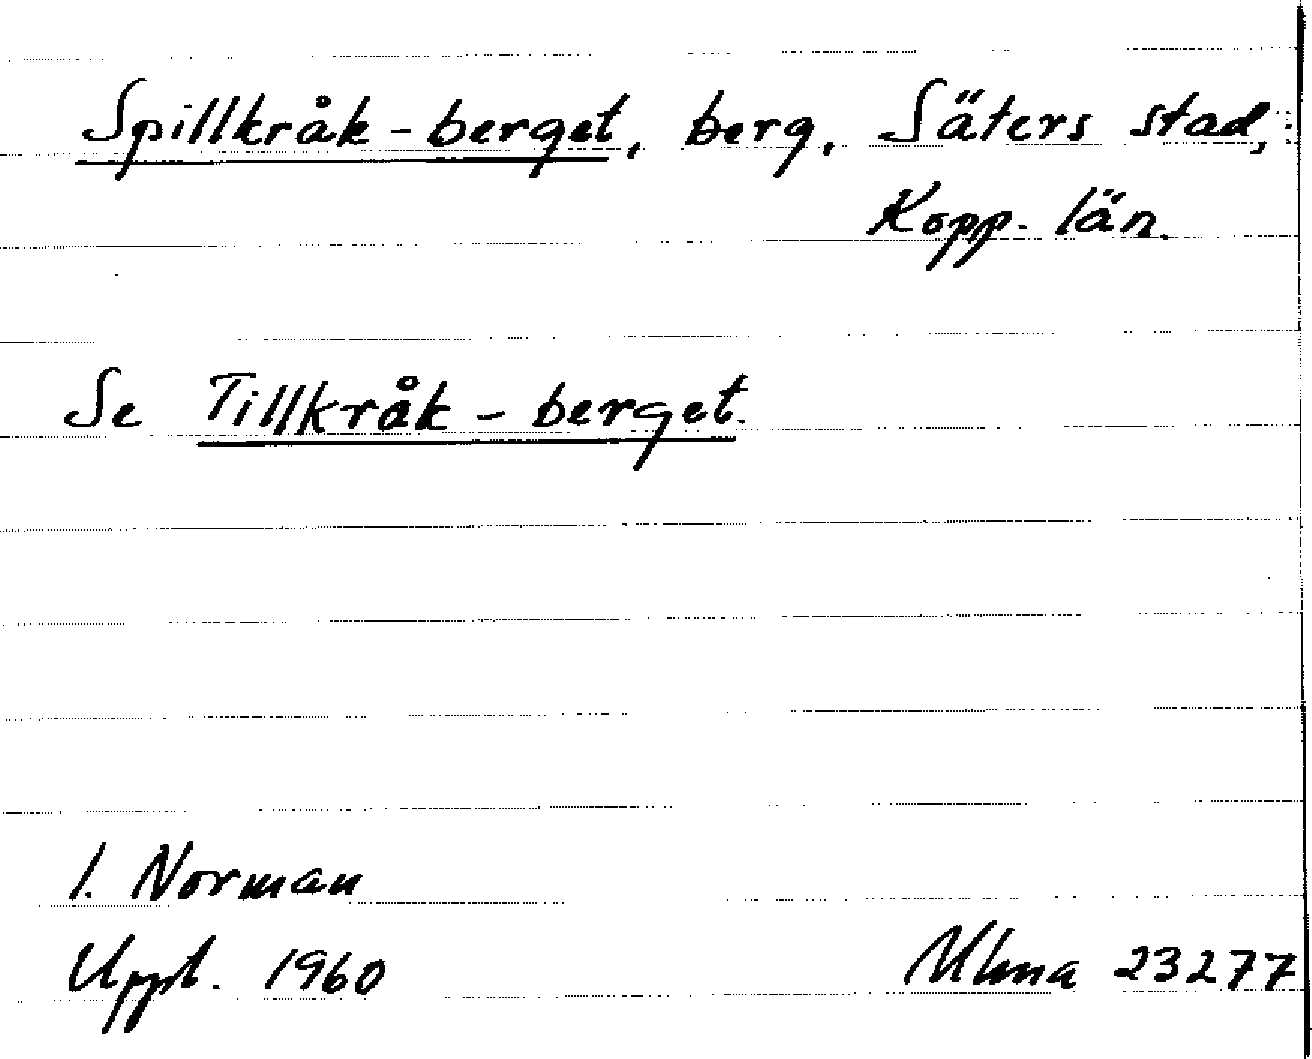 Spillkråk-berget, berg, Säters stad,
Kopp. län.
Se Tillkråk-berget.
I. Norman
Uppt. 1960 Ulma 23277